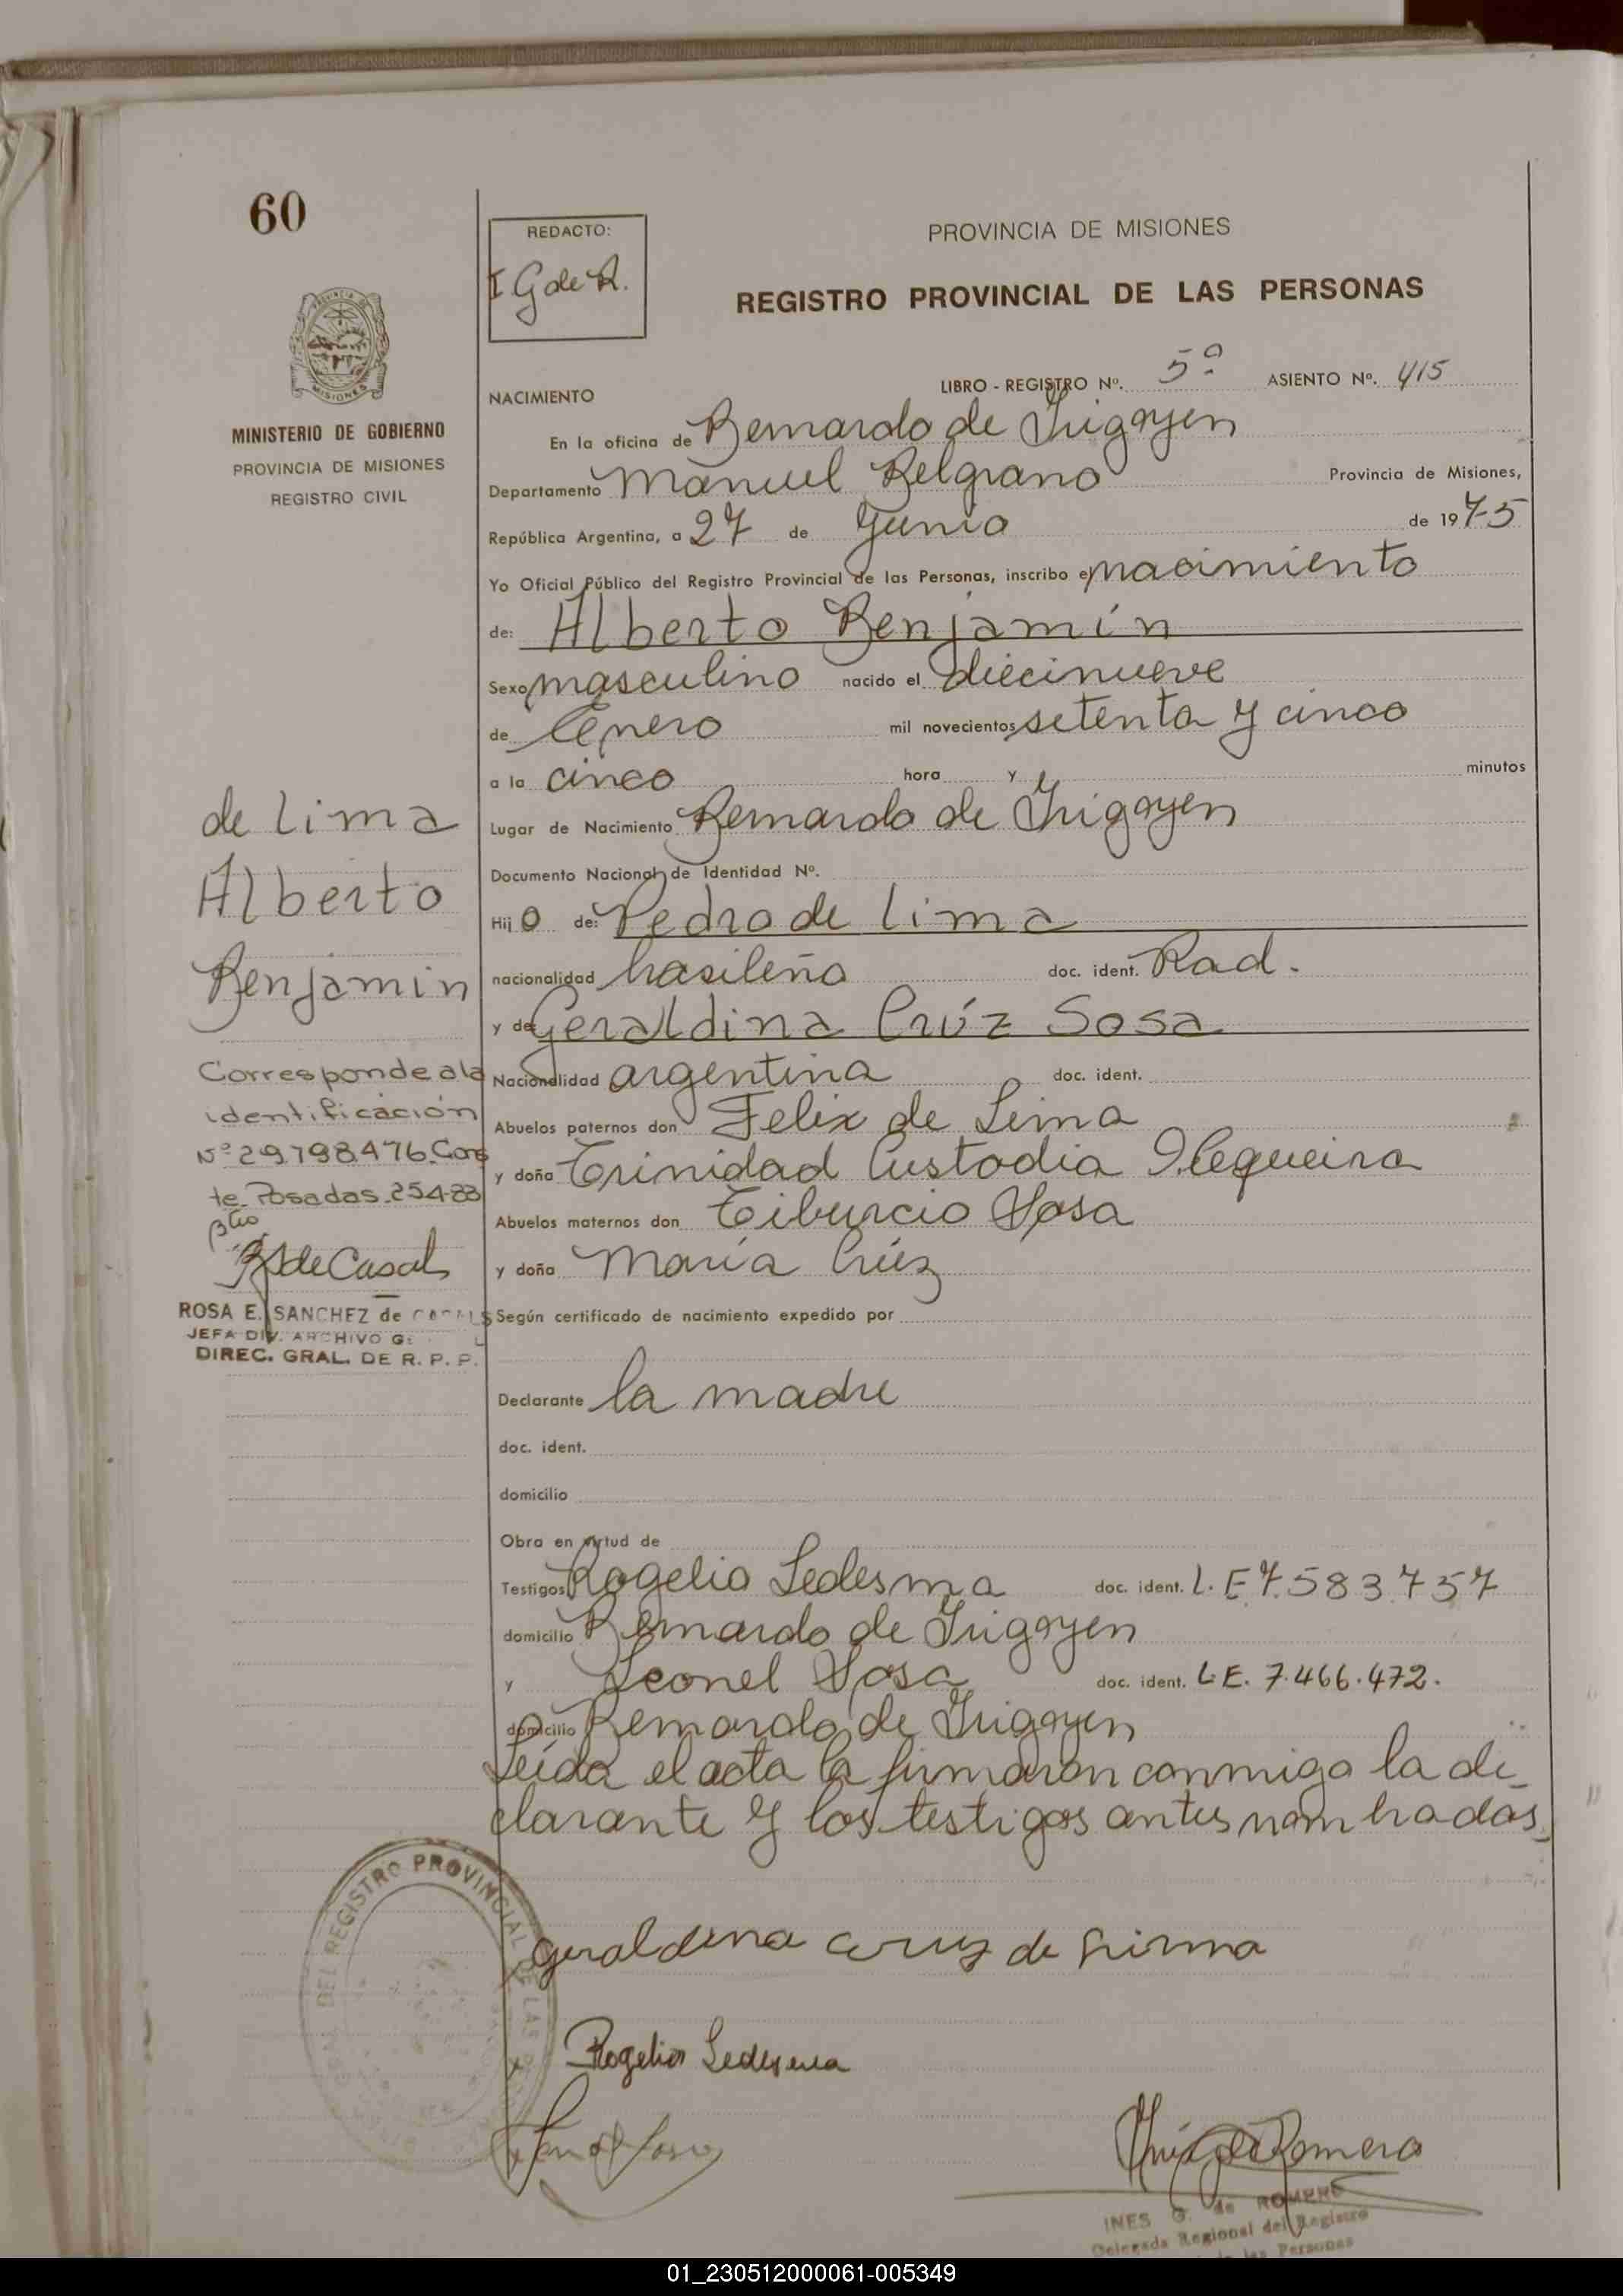 60
REDACTO:
I G de R.
PROVINCIA DE MISIONES
REGISTRO PROVINCIAL DE LAS PERSONAS
PROVINCIA DE
MISIONES
MINISTERIO DE GOBIERNO
PROVINCIA DE MISIONES
REGISTRO CIVIL
LIBRO - REGISTRO Nº. 5º ASIENTO Nº. 415
NACIMIENTO
En la oficina de Bernardo de Irigoyen
Departamento Manuel Belgrano Provincia de Misiones,
República Argentina, a 27 de Junio de 1975
Yo Oficial Público del Registro Provincial de las Personas, inscribo el nacimiento
de: Alberto Benjamín
Sexo masculino nacido el diecinueve
de Enero mil novecientos setenta y cinco
a la cinco hora y minutos
Lugar de Nacimiento Bernardo de Irigoyen
Documento Nacional de Identidad Nº.
Hijo de: Pedro de lima
nacionalidad brasileña doc. ident. Rad.
y de Geraldina Crúz Sosa
Nacionalidad argentina doc. ident.
Abuelos paternos don Felix de Lima
y doña Trinidad Custodia
Abuelos maternos don Tiburcio Sosa
y doña María Crúz
Según certificado de nacimiento expedido por
Declarante la madre
doc. ident.
domicilio
Obra en virtud de
Testigos Rogelio Ledesma doc. ident. L.E 7.583.757
domicilio Bernardo de Irigoyen
y Leonel Sosa doc. ident. L.E. 7.466.472.
domicilio Bernardo de Irigoyen
Leída el acta la firmaron conmigo la de_
clarante y los testigos antes nombrados,
de lima
Alberto
Benjamin
Corresponde a la
identificación
Nº 29.798.476. Cons
te. Posadas. 25-4-83
R S de Casals
ROSA E. SANCHEZ de CASALS
JEFA DIV. ARCHIVO G
DIREC. GRAL. DE R. P. P.
DEL REGISTRO PROVINCIAL DE LAS
Geraldina Cruz de Lima
Rogelio Ledesma
Inés G de Romero
INES G. de ROMERO
Delegada Regional del Registro
de las Personas
01_230512000061-005349